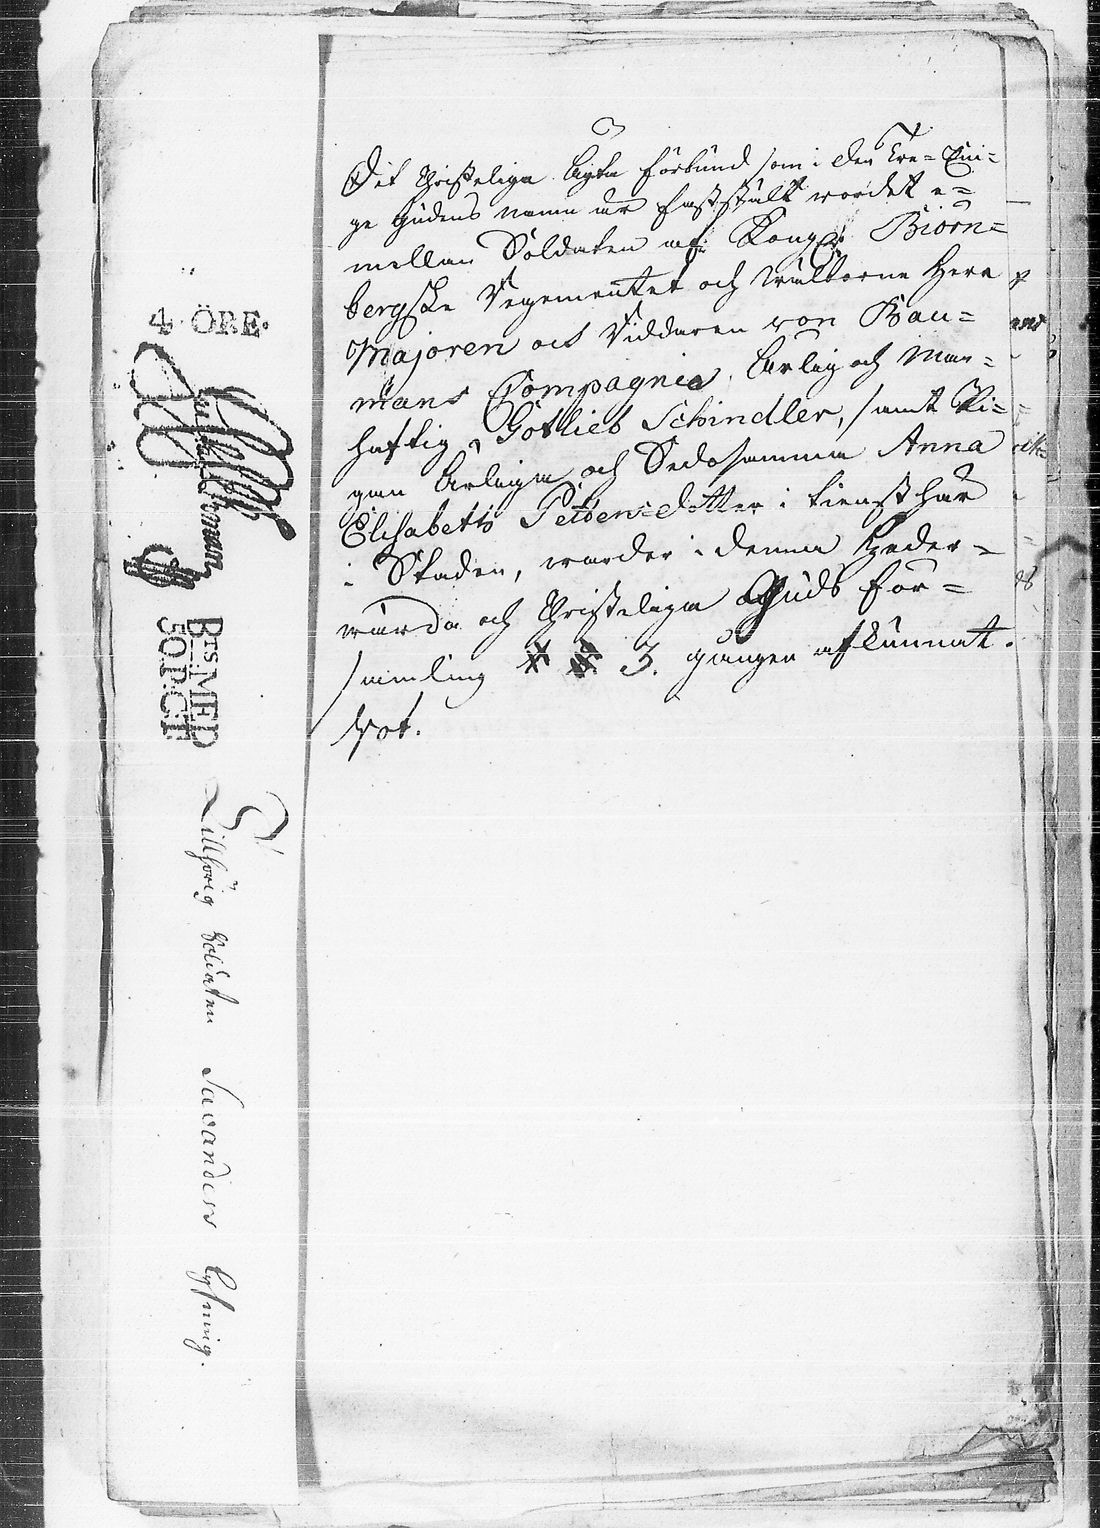 Det Christeliga ägta förbund som i den Tre-Eni=
ge Gudens namn är fastställt wordet e=
mellan Soldaten af Kongl: Biörn=
bergske Regementet och wälborne Herr
Majoren och Riddaren von Bau=
mans Compagnie ärlig och Man=
haftig Gotlieb Schindler, samt Pi=
gan ärliga och Sedosamma Anna
Elisabeth Petters=dotter i tienst här
i Staden, warder i denna Heder=
wärda och Christeliga Guds För=
samling 3. gången afkunnat.
4 ÖRE.
BTS MED
50.P.CT
Tillhörig Soldaten Savanders Lysning.